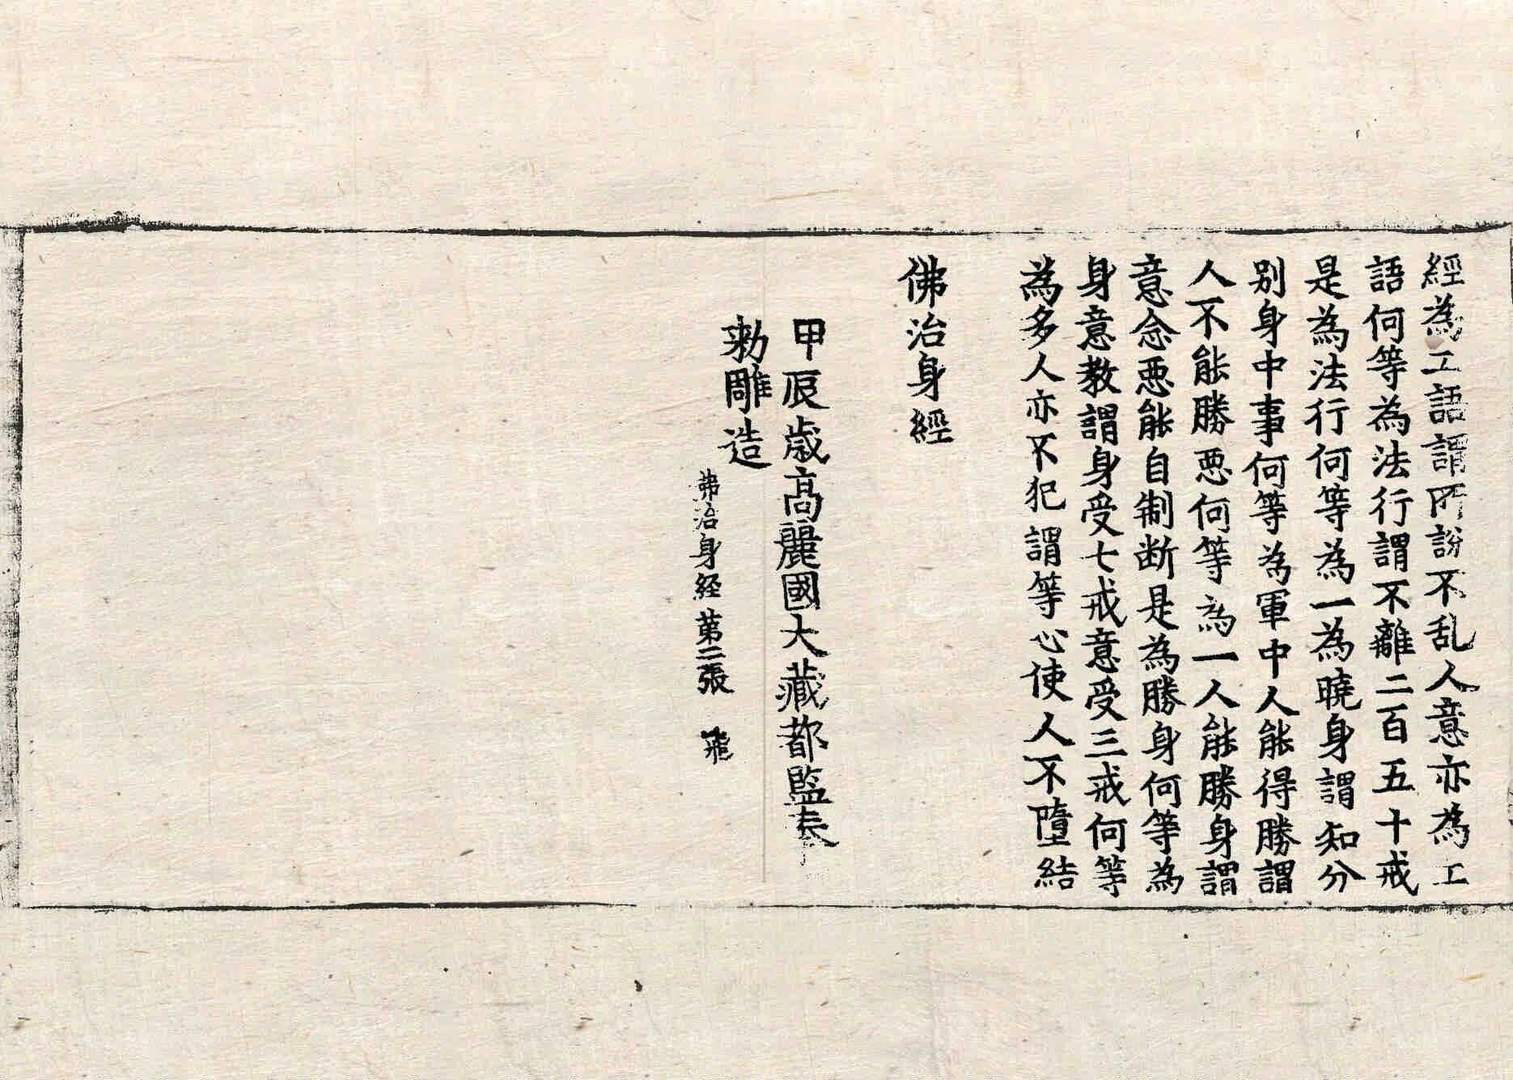 經為工語謂所說不乱人意亦為工
語何等為法行謂不離二百五十戒
是為法行何等為一為曉身謂知分
别身中事何等為軍中人能得勝謂
人不能勝惡何等為一人能勝身謂
意念惡能自制断是為勝身何等為
身意教謂身受七戒意受三戒何等
為多人亦不犯謂等心使人不墮結
佛治身經
甲辰歳高麗國大藏都監奉
勑雕造
弗治身経第二張 飛